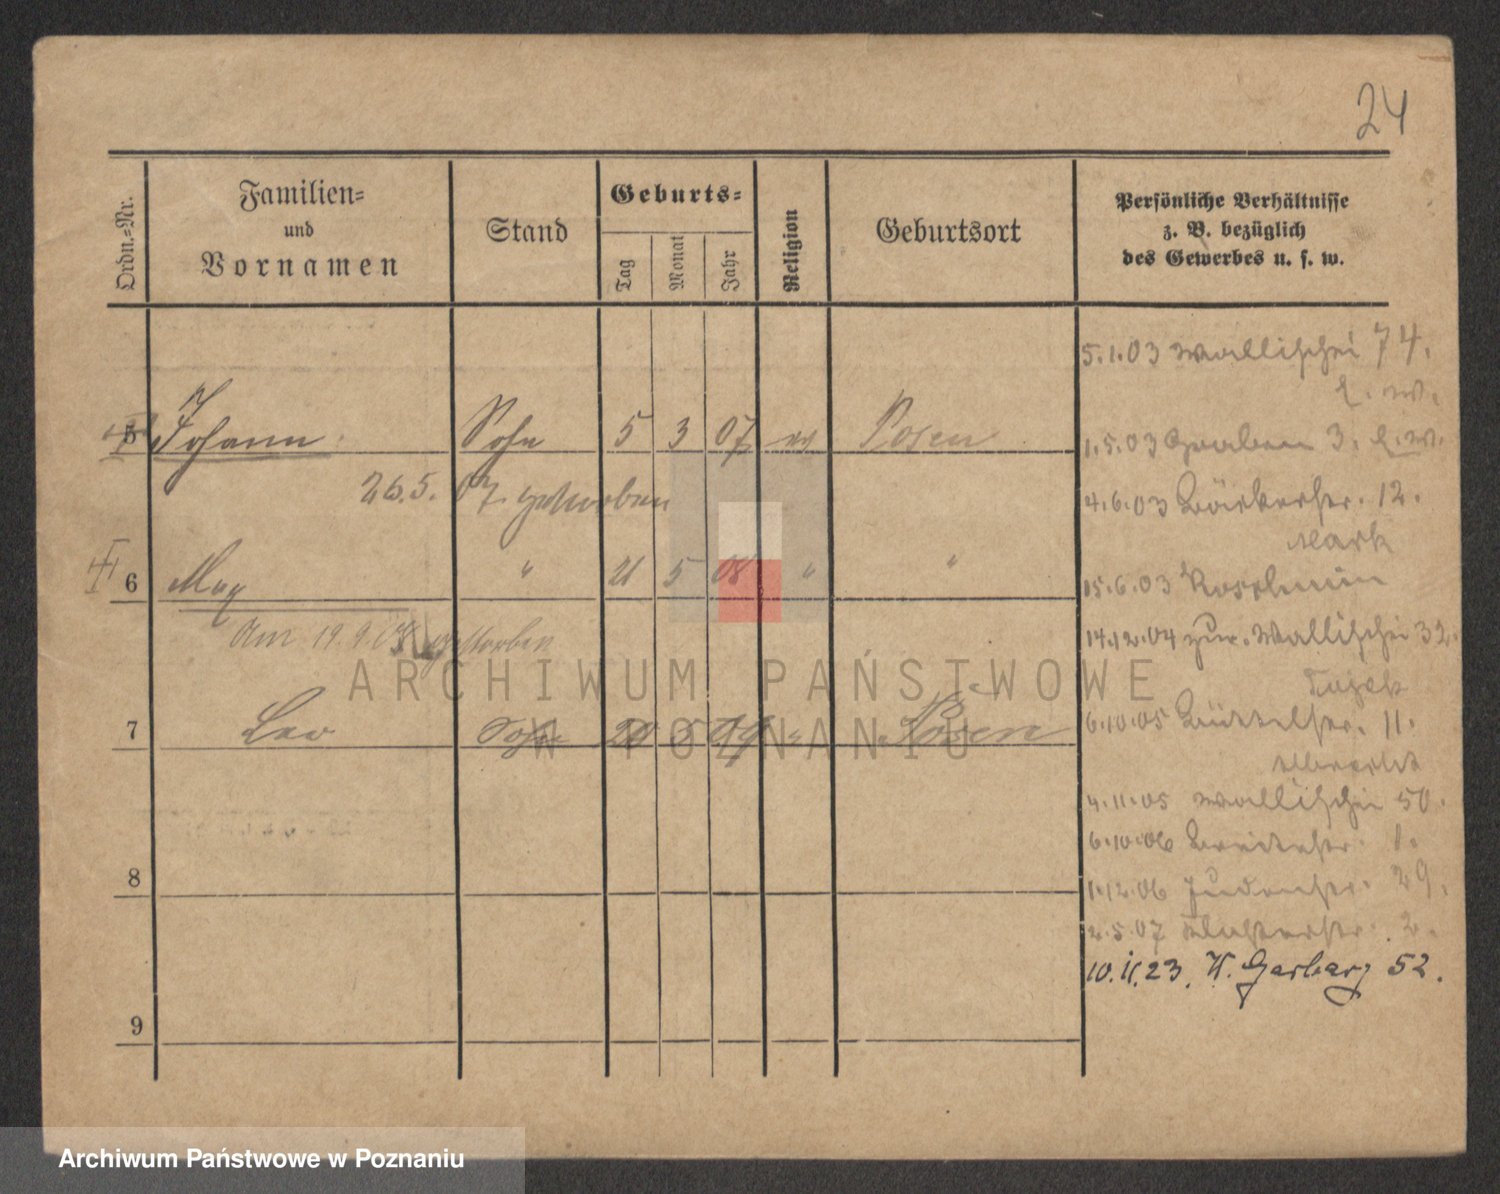 24
Ordn.-Nr.
Familien-
und
Vornamen
Stand
Geburts-
Tag
Monat
Jahr
Religion
Geburtsort
Persönliche Verhältnisse
z. B. bezüglich
des Gewerbes u. s. w.
5.1.03 Wallischei 74.
5 Johann Sohn 5 3 07 Posen
1.5.03 Graben 3.
26.5. 07. gestorben
4.6.03 Bäckerstr. 12.
Mark
6 Max " 21 5 08 " "
15.6.03
Am 19.9.08 gestorben
14.12.04 zur. Wallischei 32.
7 Leo Sohn 20 5 09 " Posen
6.10.05 Büttelstr. 11.
4.11.05 Wallischei 50.
6.10.06 Breitestr. 1.
8
1.12.06 Judenstr. 29.
2.5.07 Klosterstr. 2.
10.11.23. W. Garbary 52.
9
ARCHIWUM PAŃSTWOWE
W POZNANIU
Archiwum Państwowe w Poznaniu